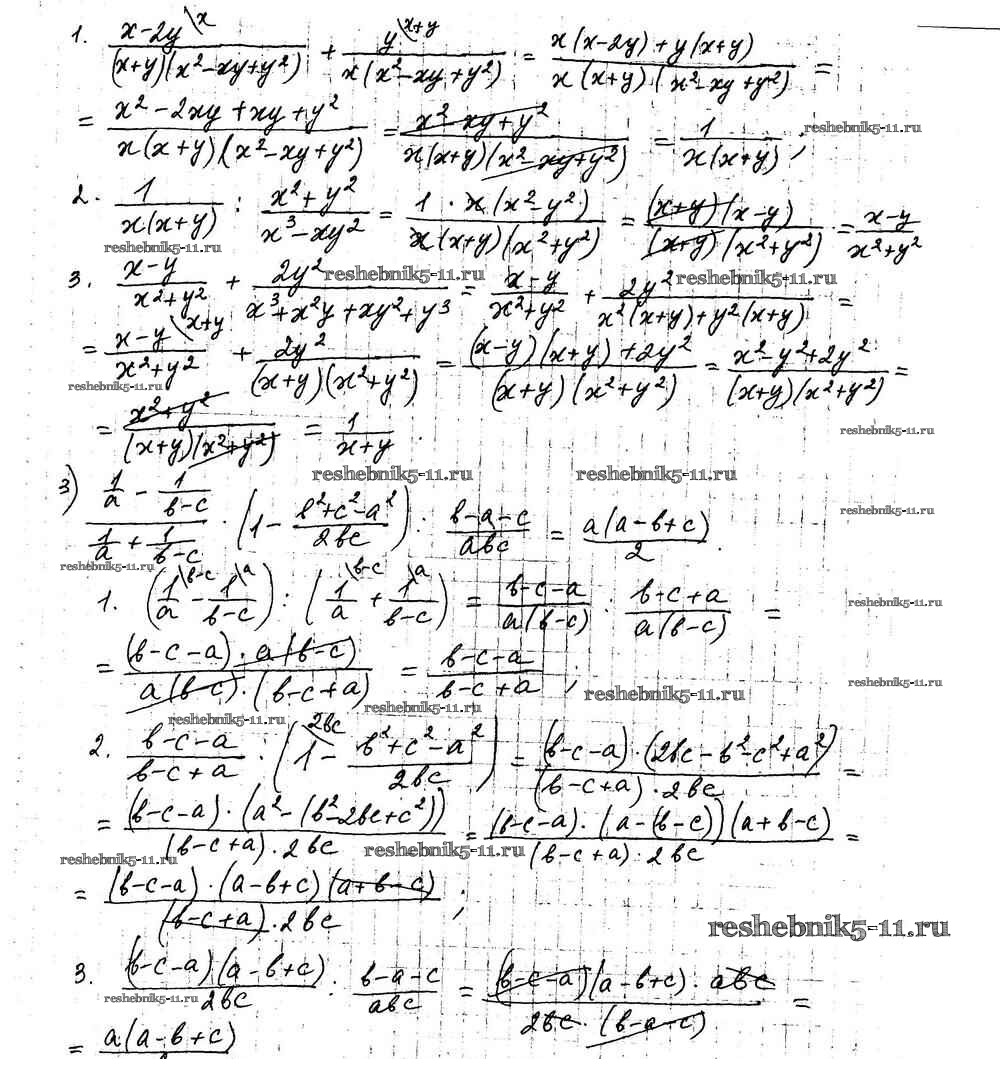 1. (x-2y \x)/((x+y)(x²-xy+y²)) + (y \x+y)/(x(x²-xy+y²)) = (x(x-2y)+y(x+y))/(x(x+y)(x²-xy+y²)) =
= (x²-2xy+xy+y²)/(x(x+y)(x²-xy+y²)) = (x²-xy+y²)/(x(x+y)(x²-xy+y²)) = 1/(x(x+y)) ;
reshebnik5-11.ru
2. 1/(x(x+y)) : (x²+y²)/(x³-xy²) = (1·x(x²-y²))/(x(x+y)(x²+y²)) = ((x+y)(x-y))/((x+y)(x²+y²)) = (x-y)/(x²+y²)
reshebnik5-11.ru
reshebnik5-11.ru reshebnik5-11.ru
3. (x-y)/(x²+y²) + 2y²/(x³+x²y+xy²+y³) = (x-y)/(x²+y²) + 2y²/(x²(x+y)+y²(x+y)) =
= (x-y \x+y)/(x²+y²) + 2y²/((x+y)(x²+y²)) = ((x-y)(x+y)+2y²)/((x+y)(x²+y²)) = (x²-y²+2y²)/((x+y)(x²+y²)) =
reshebnik5-11.ru
= (x²+y²)/((x+y)(x²+y²)) = 1/(x+y) .
reshebnik5-11.ru
reshebnik5-11.ru reshebnik5-11.ru
3) (1/a - 1/(b-c))/(1/a + 1/(b-c)) · (1 - (b²+c²-a²)/2bc) : (b-a-c)/abc = a(a-b+c)/2 .
reshebnik5-11.ru
reshebnik5-11.ru
1. (1/a \b-c - 1/(b-c) \a) : (1/a \b-c + 1/(b-c) \a) = (b-c-a)/(a(b-c)) : (b-c+a)/(a(b-c)) =
reshebnik5-11.ru
= ((b-c-a)·a(b-c))/(a(b-c)·(b-c+a)) = (b-c-a)/(b-c+a) ;
reshebnik5-11.ru reshebnik5-11.ru
reshebnik5-11.ru reshebnik5-11.ru
2. (b-c-a)/(b-c+a) : (1 \2bc - (b²+c²-a²)/2bc) = ((b-c-a)·(2bc-b²-c²+a²))/((b-c+a)·2bc) =
= ((b-c-a)·(a²-(b²-2bc+c²)))/((b-c+a)·2bc) = ((b-c-a)·(a-(b-c))(a+b-c))/((b-c+a):2bc) =
reshebnik5-11.ru reshebnik5-11.ru
= ((b-c-a)·(a-b+c)(a+b-c))/((b-c+a)·2bc) ;
reshebnik5-11.ru
3. ((b-c-a)(a-b+c))/2bc : (b-a-c)/abc = ((b-c-a)(a-b+c)·abc)/(2bc·(b-a-c)) =
reshebnik5-11.ru
= a(a-b+c)